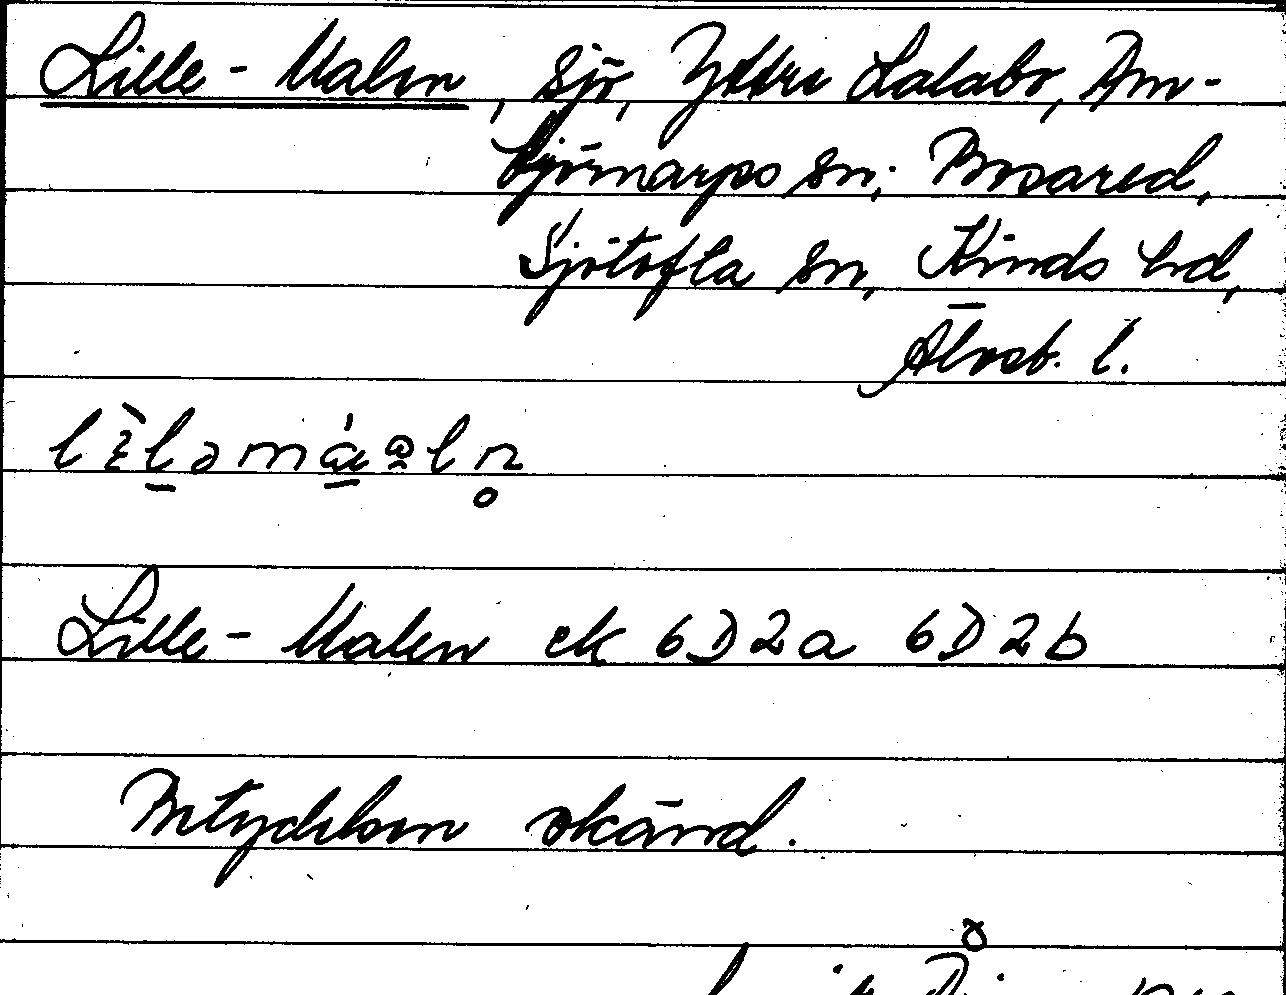 Lille-Malen, sjö, Yttre Lalabo, Am-
björnarps sn; Bosared,
Sjötofta sn, Kinds hd,
Älvsb. l.
Lille-Malen ek 6D2a 6D2b
Betydelsen okänd.